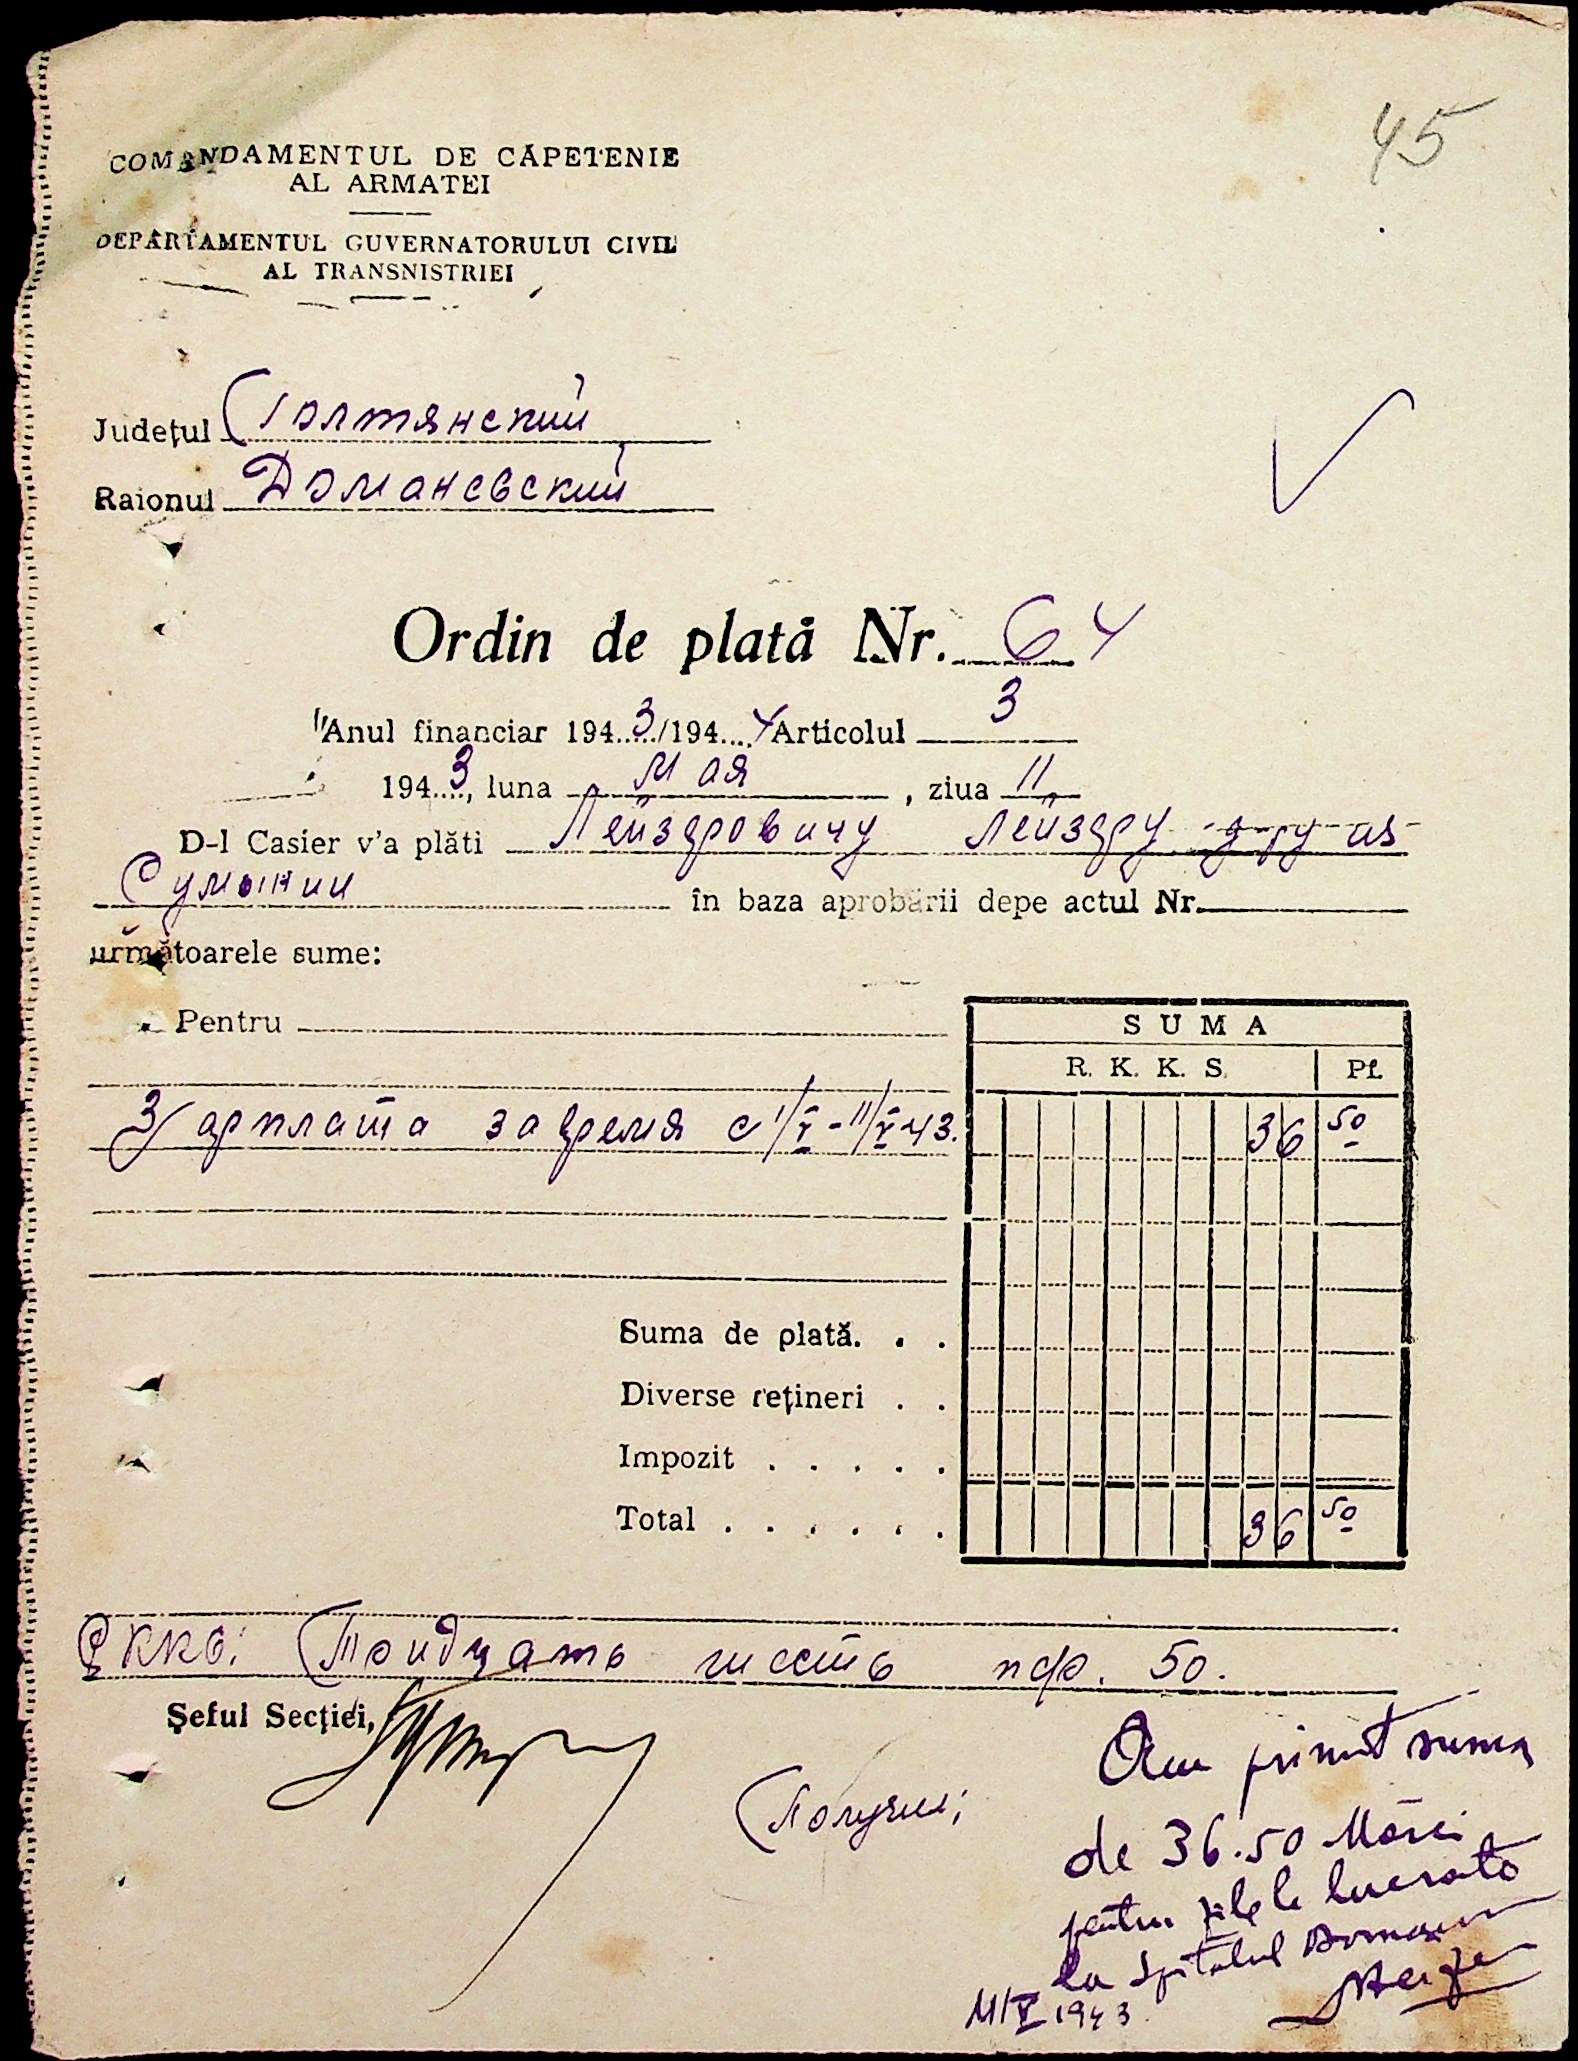 45
COMANDAMENTUL DE CĂPETENIE
AL ARMATEI
DEPARTAMENTUL GUVERNATORULUI CIVIL
AL TRANSNISTRIEI
Județul Голтянский
Raionul Доманевский
Ordin de plată Nr. 64
Anul financiar 194 3 /194 4 Articolul 3
194 3, luna Мая, ziua 11
D-l Casier v'a plăti Лейзеровичу Лейзеру из
în baza aprobării depe actul Nr.
următoarele sume:
Pentru
SUMA
R. K. K. S. Pf.
Зарплата за время с 1/V-11/V-43. 36 50
Suma de plată. . .
Diverse rețineri . .
Impozit . . . . .
Total . . . . . . 36 50
Тридцать шесть пф. 50.
Șeful Secției,
Am primit suma
Получил;
de 36.50 Mărci
pentru zilele lucrate
la Spitalul
11/V 1943